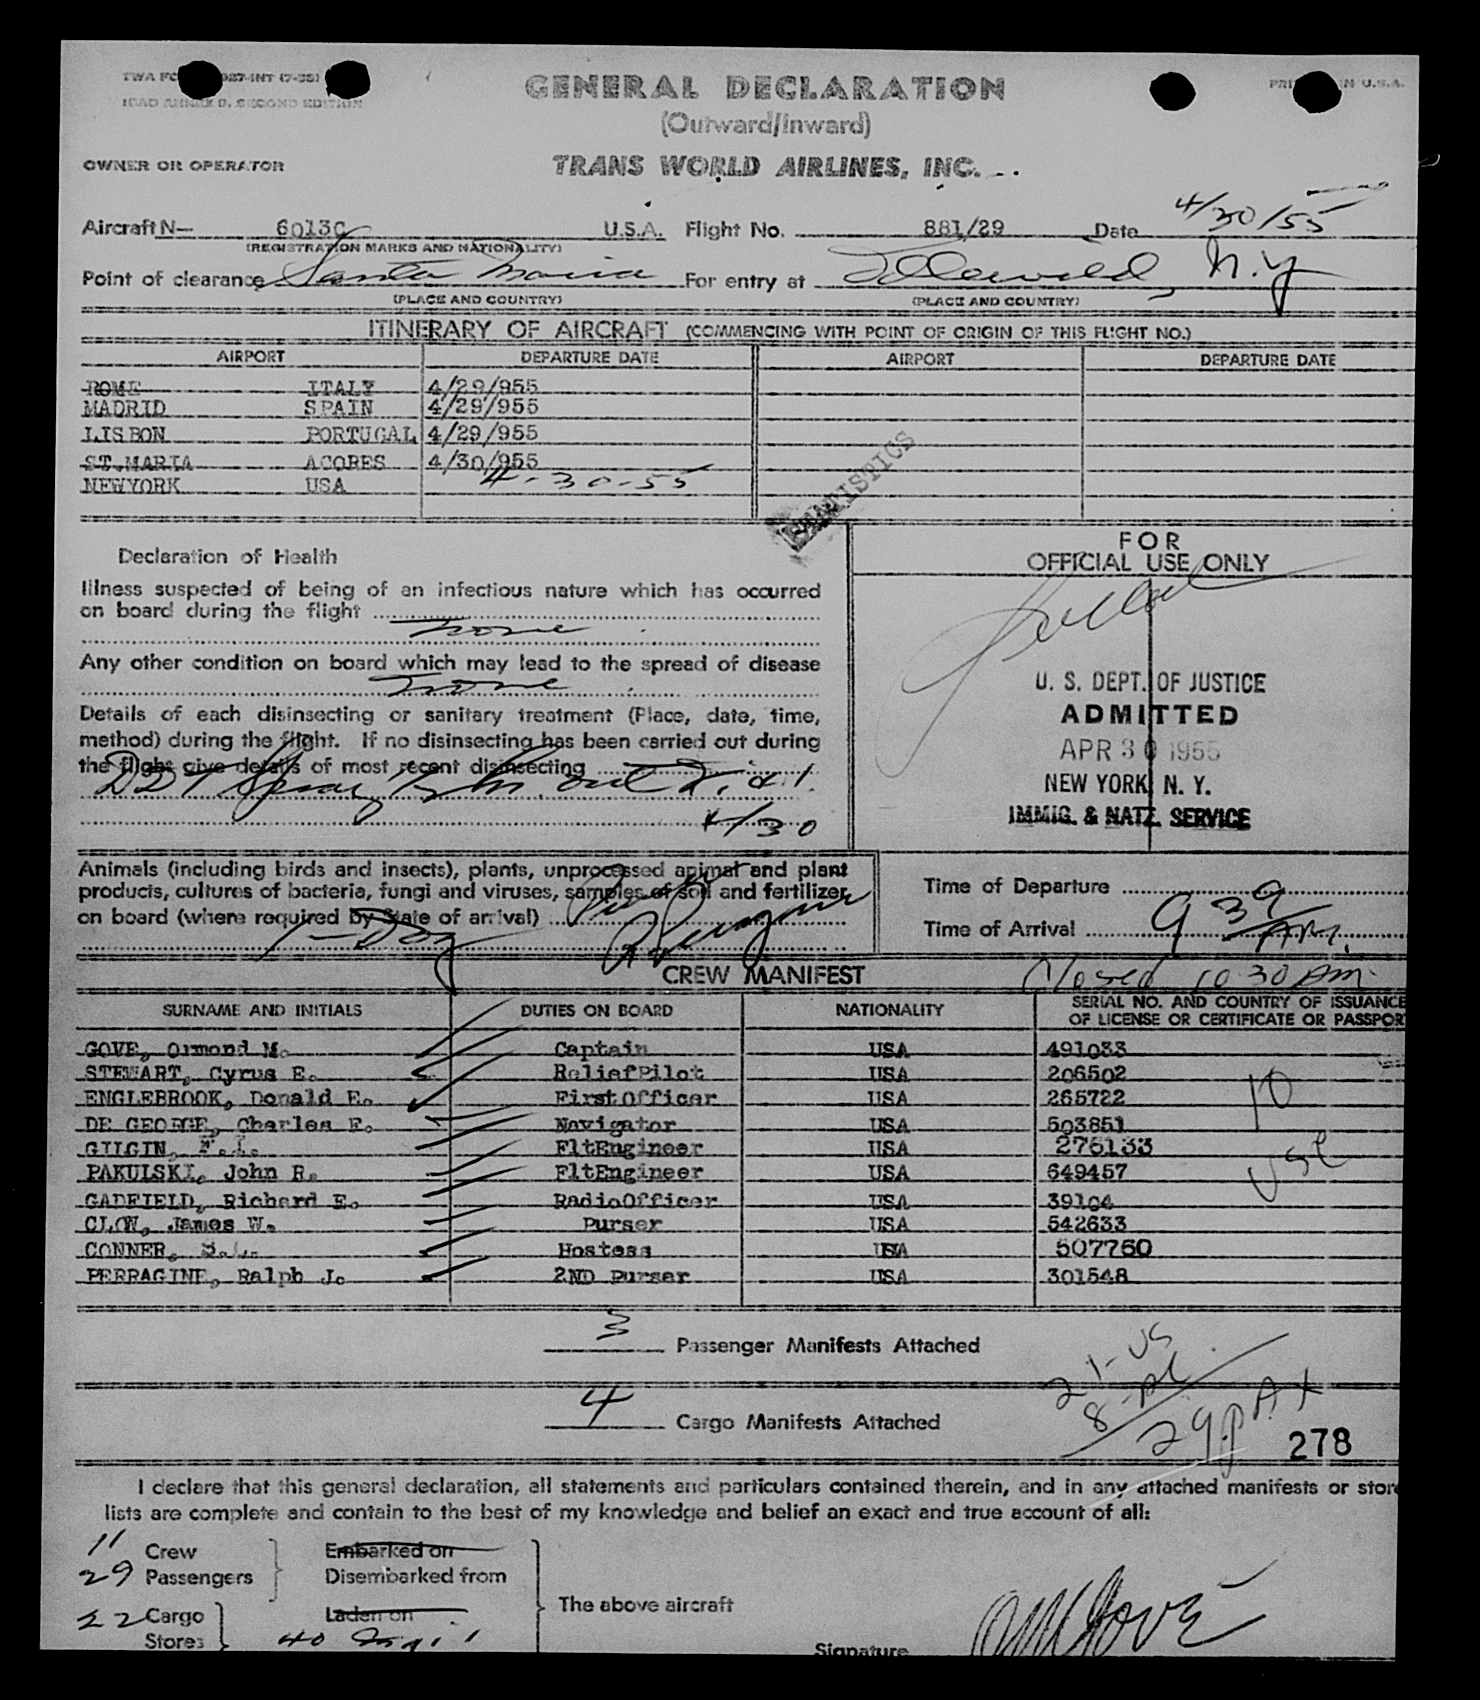 GENERAL DECLARATION
PRINTED IN U.S.A.
ICAO ANNEX 9, SECOND EDITION
(Outward/Inward)
OWNER OR OPERATOR TRANS WORLD AIRLINES, INC.
Aircraft N— 6013C U.S.A. Flight No. 881/29 Date 4/30/55
(REGISTRATION MARKS AND NATIONALITY)
Point of clearance Santa Maria For entry at Idlewild, N.Y
(PLACE AND COUNTRY) (PLACE AND COUNTRY)
ITINERARY OF AIRCRAFT (COMMENCING WITH POINT OF ORIGIN OF THIS FLIGHT NO.)
AIRPORT DEPARTURE DATE AIRPORT DEPARTURE DATE
ROME ITALY 4/29/955
MADRID SPAIN 4/29/955
LISBON PORTUGAL 4/29/955
ST.MARIA ACORES 4/30/955
NEWYORK USA 4-30-55
STATISTICS
Declaration of Health
Illness suspected of being of an infectious nature which has occurred
on board during the flight
none
Any other condition on board which may lead to the spread of disease
none
Details of each disinsecting or sanitary treatment (Place, date, time,
method) during the flight. If no disinsecting has been carried out during
the flight give details of most recent disinsecting
DDT Spray
4/30
FOR
OFFICIAL USE ONLY
U. S. DEPT. OF JUSTICE
ADMITTED
APR 30 1955
NEW YORK, N. Y.
IMMIG. & NATZ. SERVICE
Animals (including birds and insects), plants, unprocessed animal and plant
products, cultures of bacteria, fungi and viruses, samples of soil and fertilizer
on board (where required by State of arrival)
1 - Dog
Time of Departure
Time of Arrival 9 39 AM.
CREW MANIFEST Closed 10 30 AM
SURNAME AND INITIALS DUTIES ON BOARD NATIONALITY SERIAL NO. AND COUNTRY OF ISSUANCE
OF LICENSE OR CERTIFICATE OR PASSPORT
GOVE, Ormond M. Captain USA 491033
STEWART, Cyrus E. ReliefPilot USA 206502
ENGLEBROOK, Donald E. FirstOfficer USA 265722
DE GEORGE, Charles F. Navigator USA 503851
GILGIN, F.L. FltEngineer USA 276133
PAKULSKI, John R. FltEngineer USA 649457
GADFIELD, Richard E. RadioOfficer USA 39104
CLOW, James W. Purser USA 542633
CONNER, S.L. Hostess USA 507760
PERRAGINE, Ralph J. 2ND purser USA 301548
10
USC
3 Passenger Manifests Attached
4 Cargo Manifests Attached
21-US
8-AL
29 PAX
278
I declare that this general declaration, all statements and particulars contained therein, and in any attached manifests or store
lists are complete and contain to the best of my knowledge and belief an exact and true account of all:
11 Crew
29 Passengers
Embarked on
Disembarked from
22 Cargo
Stores
Laden on
The above aircraft
Signature OM Gove